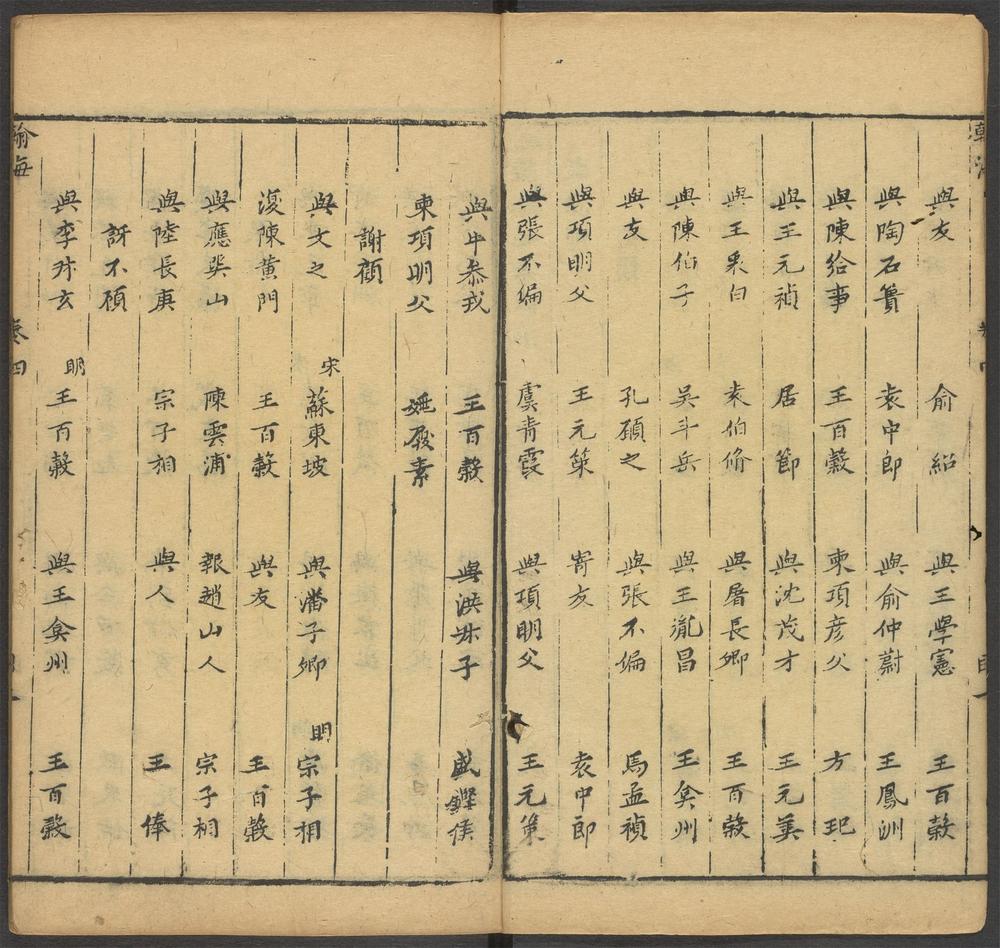 與友　俞紹　與王學憲　王百穀
與陶石簣　袁中郎　與俞仲蔚　王鳳洲
與陳給事　王百穀　柬項彥父　方
與王元禎　居節　與沈茂才　王元美
與王泉白　袁伯脩　與屠長卿　王百穀
與陳伯子　吳斗岳　與王胤昌　王弇州
與友　孔碩之　與張不偏　馬孟禎
與項明父　王元策　寄友　袁中郎
與張不偏　虞青霞　與項明父　王元策
與中叅戎　王百穀　與洪好子　盛鏗侯
柬項明父　素
謝顧
與文之　宋　蘇東坡　與潘子卿　明　宗子相
復陳黃門　王百穀　與友　王百穀
與應巽山　陳雲浦　報趙山人　宗子相
與陸長庚　宗子相　與人　王俸
訝不顧
與李玄　明　王百穀　與王弇州　王百穀
翰海　卷四